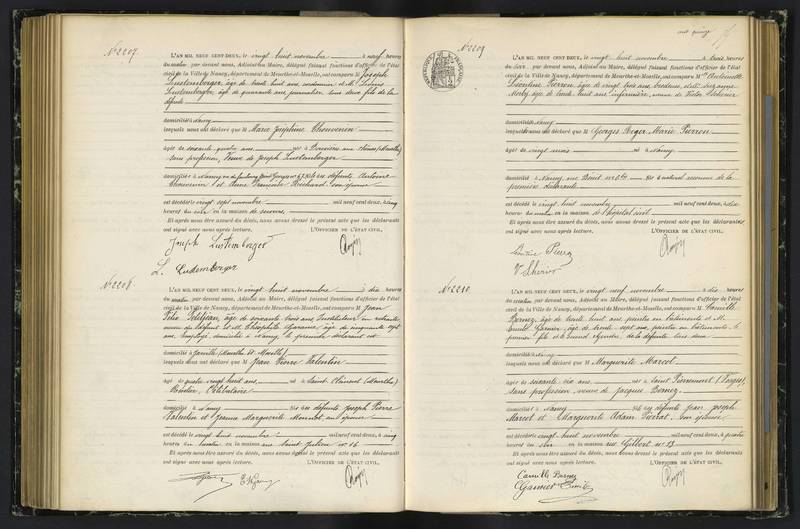 N° 2207
L'AN MIL NEUF CENT DEUX, le vingt huit novembre à neuf heures
du matin par devant nous, Adjoint au Maire, délégué faisant fonctions d'officier de l'état
civil de la Ville de Nancy, département de Meurthe-et-Moselle, ont comparu M Joseph
Lustemberger, âgé de trente huit ans, cordonnier et M.
Lustemberger, âgé de quarante ans, journalier tous deux fils de la
défunte
domiciliés à Nancy
lesquels nous ont déclaré que M Marie Joséphine Thouvenin
âgée de soixante quatre ans née à
sans profession, Veuve de Joseph Lustemberger
domiciliée à Nancy, Faubourg Saint Georges n° défunts Antoine
Thouvenin et Anne Françoise Richard son épouse
est décédée le vingt sept novembre mil neuf cent deux, à cinq
heures du soir en la maison de secours
Et après nous être assuré du décès, nous avons dressé le présent acte que les déclarants
ont signé avec nous après lecture. L'OFFICIER DE L'ÉTAT CIVIL,
Joseph Lustemberger
L. Ludemberger
N° 2208
L'AN MIL NEUF CENT DEUX, le vingt huit novembre à dix heures
du matin par devant nous, Adjoint au Maire, délégué faisant fonctions d'officier de l'état
civil de la Ville de Nancy, département de Meurthe-et-Moselle, ont comparu M Jean
Félix Petitjean, âgé de soixante trois ans, Instituteur en retraite
cousin du défunt et M. Théophile âgé de cinquante sept
ans, employé, domicilié à Nancy le premier déclarant est
domicilié à (Meurthe et Moselle)
lesquels nous ont déclaré que M Jean Pierre Valentin
âgé de quatre vingt huit ans, né à Saint Clément (Meurthe)
Rentier, Célibataire
domicilié à Nancy fils des défunts Joseph Pierre
Valentin et Jeanne Marguerite son épouse
est décédé le vingt huit novembre mil neuf cent deux, à cinq
heures du matin en la maison rue Saint Julien n° 16
Et après nous être assuré du décès, nous avons dressé le présent acte que les déclarants
ont signé avec nous après lecture. L'OFFICIER DE L'ÉTAT CIVIL,
N° 2209
L'AN MIL NEUF CENT DEUX, le vingt huit novembre à trois heures
du soir par devant nous, Adjoint au Maire, délégué faisant fonctions d'officier de l'état
civil de la Ville de Nancy, département de Meurthe-et-Moselle, ont comparu M Antoinette
Léontine Pierron, âgée de vingt trois ans, brodeuse, et Suzanne
âgée de trente huit ans infirmière, veuve de Victor
domiciliés à Nancy
lesquels nous ont déclaré que M Georges Roger Marie Pierron
âgé de vingt mois né à Nancy
domicilié à Nancy, rue fils naturel reconnu de la
première déclarante
est décédé le vingt huit novembre mil neuf cent deux, à dix
heures du matin en la maison de l'hôpital civil
Et après nous être assuré du décès, nous avons dressé le présent acte que les déclarantes
ont signé avec nous après lecture. L'OFFICIER DE L'ÉTAT CIVIL,
N° 2210
L'AN MIL NEUF CENT DEUX, le vingt neuf novembre à dix heures
du matin par devant nous, Adjoint au Maire, délégué faisant fonctions d'officier de l'état
civil de la Ville de Nancy, département de Meurthe-et-Moselle, ont comparu M Camille
Bornez, âgé de trente huit ans, peintre en bâtiments et M.
Emile Garnier, âgé de trente sept ans, peintre en bâtiments, le
premier fils et le second gendre de la défunte tous deux
domiciliés à Nancy
lesquels nous ont déclaré que M Marguerite Marcot
âgée de soixante dix ans née à Saint Pierremont (Vosges)
sans profession, veuve de Jacques Bornez
domiciliée à Nancy fille des défunts Jean Joseph
Marcot et Marguerite Adam son épouse
est décédée le vingt huit novembre mil neuf cent deux, à quatre
heures du soir en la maison rue Gilbert n° 13
Et après nous être assuré du décès, nous avons dressé le présent acte que les déclarants
ont signé avec nous après lecture. L'OFFICIER DE L'ÉTAT CIVIL,
Camille Bornez
Garnier Emile